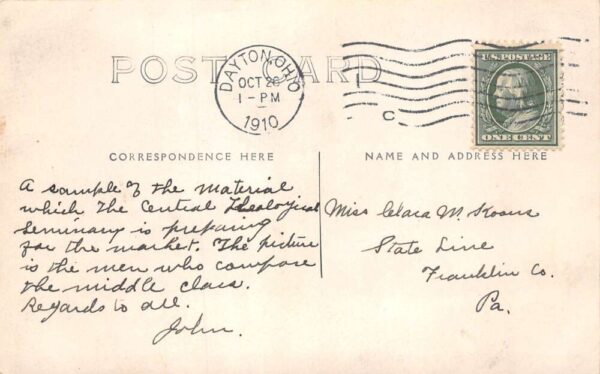 POST CARD
DAYTON, OHIO
OCT 26
1 - PM
1910
1
C
U.S. POSTAGE
ONE CENT
CORRESPONDENCE HERE
NAME AND ADDRESS HERE
A sample of the material
which the Central Theological
Seminary is preparing
for the market. The picture
is the men who compose
the middle class.
Regards to all.
John.
Miss Clara M.
State Line
Franklin Co.
Pa.